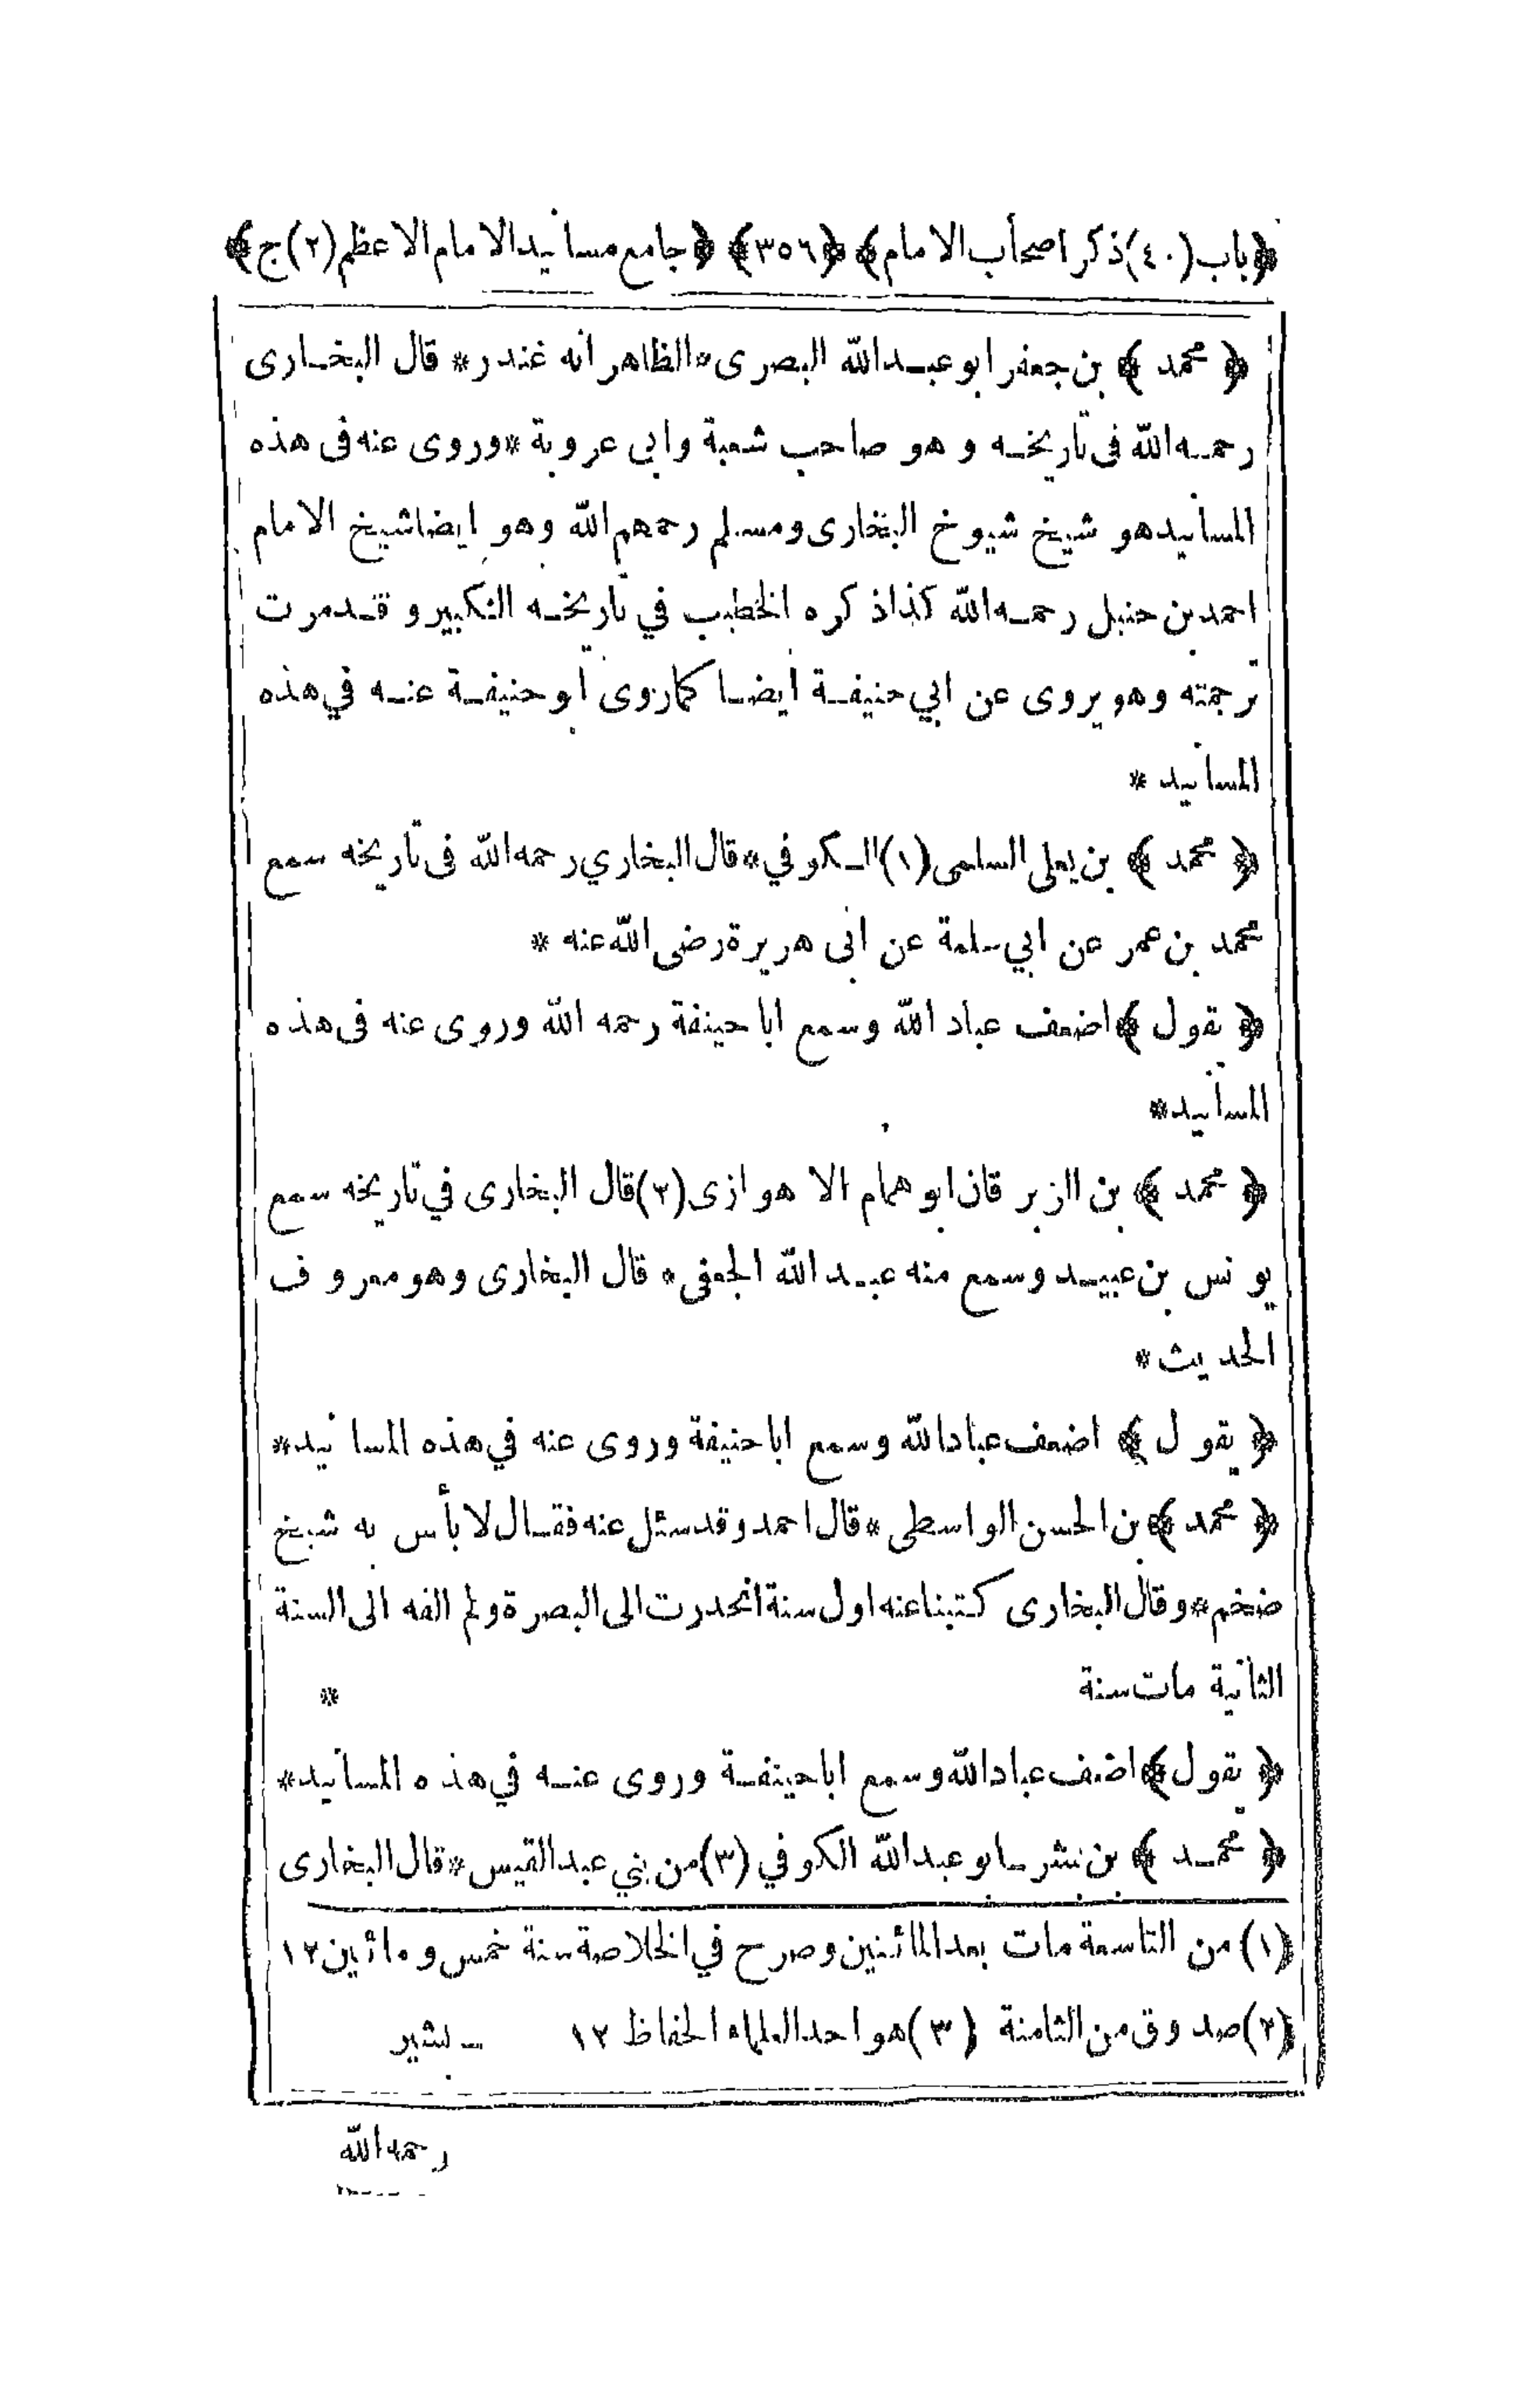 ﴿باب(٤٠)ذكر اصحاب الامام﴾ ﴿٣٥٦﴾ ﴿جامع مسانيد الامام الاعظم(٢)ج﴾
﴿ محمد ﴾ بن جعفر ابو عبد الله البصرى*الظاهر انه غندر* قال البخارى
رحمه الله فى تاريخه و هو صاحب شعبة وابي عروبة *وروى عنه فى هذه
المسانيد هو شيخ شيوخ البخارى ومسلم رحمهم الله وهو ايضا شيخ الامام
احمد بن حنبل رحمه الله كذا ذكره الخطيب في تاريخه الكبير و قد مرت
ترجمته وهو يروى عن ابي حنيفة ايضا كما روى ابو حنيفة عنه في هذه
المسانيد *
﴿ محمد ﴾ بن يعلى السلمى(١)الكوفي*قال البخاري رحمه الله فى تاريخه سمع
محمد بن عمر عن ابي سلمة عن ابى هريرة رضى الله عنه *
﴿ يقول ﴾ اضعف عباد الله وسمع ابا حينفة رحمه الله وروى عنه فى هذه
المسانيد*
﴿ محمد ﴾ بن الزبرقان ابو همام الاهوازى(٢)قال البخارى في تاريخه سمع
يونس بن عبيد وسمع منه عبد الله الجعفى* قال البخارى وهو معروف
الحديث*
﴿ يقول ﴾ اضعف عباد الله وسمع ابا حنيفة وروى عنه في هذه المسانيد*
﴿ محمد ﴾ بن الحسن الواسطى*قال احمد وقد سئل عنه فقال لا بأس به شيخ
ضخم*وقال البخارى كتبنا عنه اول سنة انحدرت الى البصرة ولم القه الى السنة
الثانية مات سنة *
﴿ يقول ﴾ اضعف عباد الله وسمع ابا حينفة وروى عنه في هذه المسانيد*
﴿ محمد ﴾ بن بشر ـ ابو عبد الله الكوفي (٣)من بني عبد القيس*قال البخارى
(١) من التاسعة مات بعد المائتين وصرح في الخلاصة سنة خمس و مائين ١٢
(٢)صدوق من الثامنة (٣)هو احد العلماء الحفاظ ١٢ ـ بشير
رحمه الله